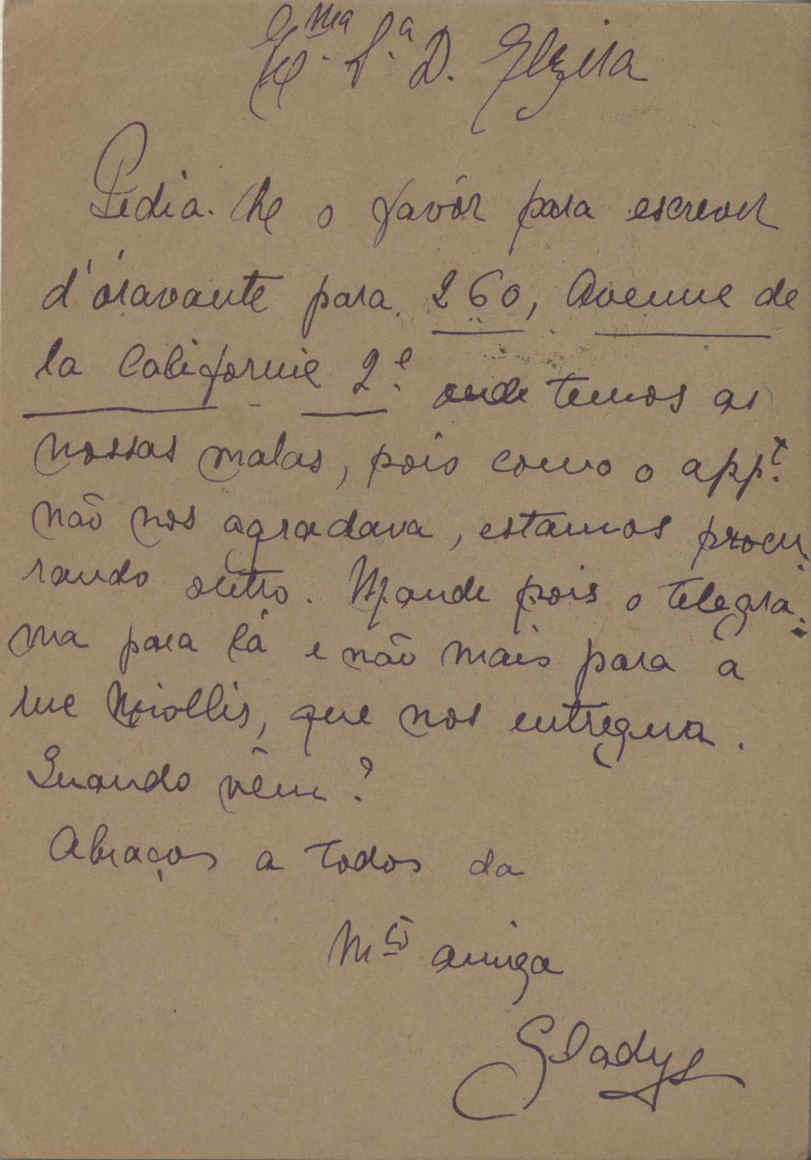 Exma Sª D. Elzira
Pedia-lhe o favôr para escrever
d'óravante para 260, Avenue de
la Californie 2e onde temos as
nossas malas, pois como o appt.
não nos agradava, estamos procu-
rando outro. Mande pois o telegra-
ma para lá e não mais para a
rue Miollis, que nos entregua.
Quando vêm?
Abraços a todos da
Mto amiga
Gladys